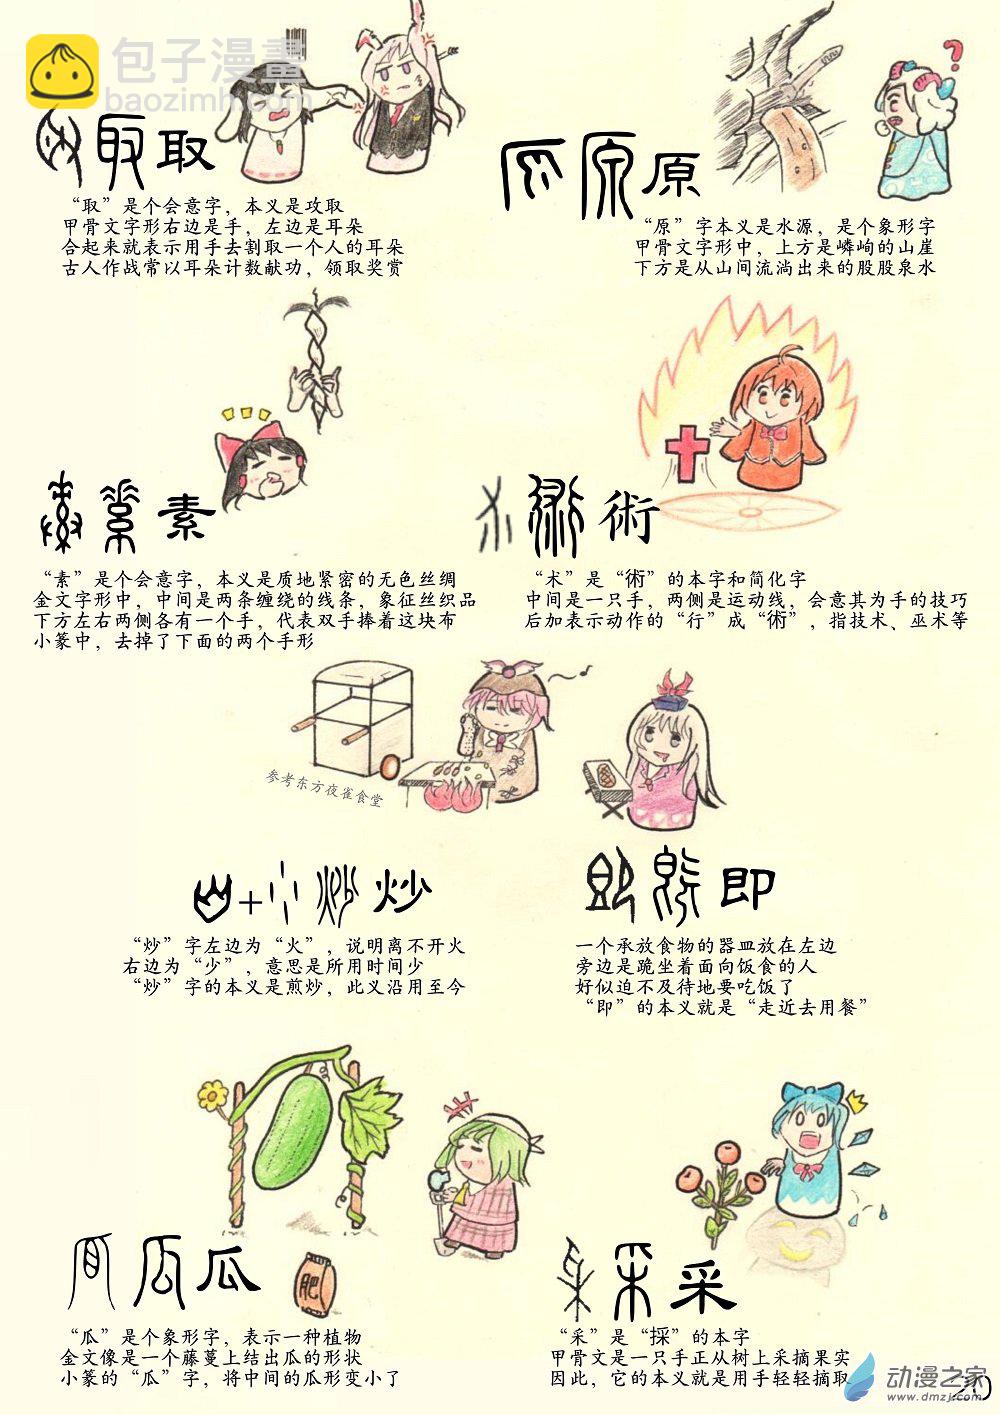 包子漫畫
baozimh.com
取取
“取”是个会意字，本义是攻取
甲骨文字形右边是手，左边是耳朵
合起来就表示用手去割取一个人的耳朵
古人作战常以耳朵计数献功，领取奖赏
?
原
“原”字本义是水源，是个象形字
甲骨文字形中，上方是嶙峋的山崖
下方是从山间流淌出来的股股泉水
素
“素”是个会意字，本义是质地紧密的无色丝绸
金文字形中，中间是两条缠绕的线条，象征丝织品
下方左右两侧各有一个手，代表双手捧着这块布
小篆中，去掉了下面的两个手形
術
“术”是“術”的本字和简化字
中间是一只手，两侧是运动线，会意其为手的技巧
后加表示动作的“行”成“術”，指技术、巫术等
参考东方夜雀食堂
+
炒
“炒”字左边为“火”，说明离不开火
右边为“少”，意思是所用时间少
“炒”字的本义是煎炒，此义沿用至今
即
一个承放食物的器皿放在左边
旁边是跪坐着面向饭食的人
好似迫不及待地要吃饭了
“即”的本义就是“走近去用餐”
瓜
肥
“瓜”是个象形字，表示一种植物
金文像是一个藤蔓上结出瓜的形状
小篆的“瓜”字，将中间的瓜形变小了
采
“采”是“採”的本字
甲骨文是一只手正从树上采摘果实
因此，它的本义就是用手轻轻摘取
动漫之家
www.dmzj.com
20